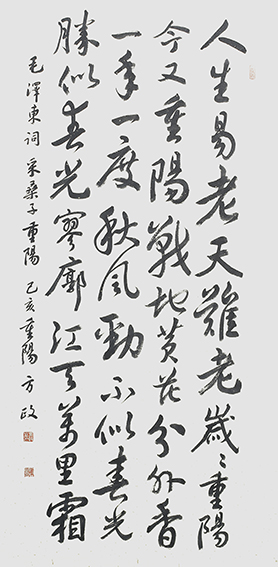 人生易老天難老歲〻重陽
今又重陽戰地黃花分外香
一年一度秋風勁不似春光
勝似春光寥廓江天萬里霜
毛澤東詞采桑子重陽 己亥重陽 方政